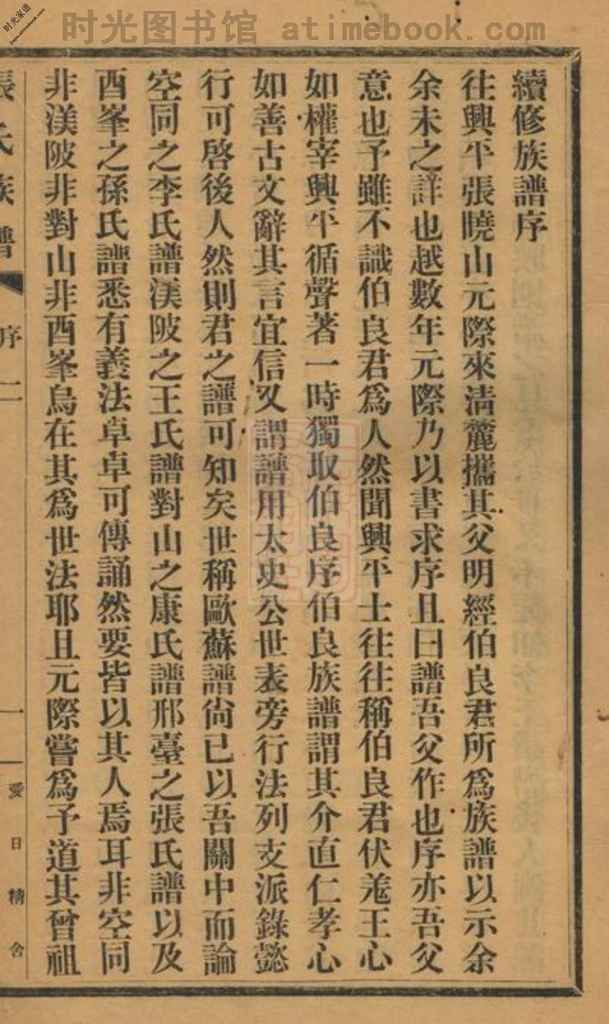 时光图书馆 atimebook.com
时光家谱
續修族譜序
往興平張曉山元際來清麓攜其父明經伯良君所爲族譜以示余
余未之詳也越數年元際乃以書求序且曰譜吾父作也序亦吾父
意也予雖不識伯良君爲人然聞興平士往往稱伯良君伏羗王心
如權宰興平循聲著一時獨取伯良序伯良族譜謂其介直仁孝心
如善古文辭其言宜信又謂譜用太史公世表旁行法列支派錄懿
行可啓後人然則君之譜可知矣世稱歐蘇譜尙已以吾關中而論
空同之李氏譜渼陂之王氏譜對山之康氏譜邢臺之張氏譜以及
酉峯之孫氏譜悉有義法卓卓可傳誦然要皆以其人焉耳非空同
非渼陂非對山非酉峯烏在其爲世法耶且元際嘗爲予道其曾祖
張氏族譜 序二 一 愛日精舍